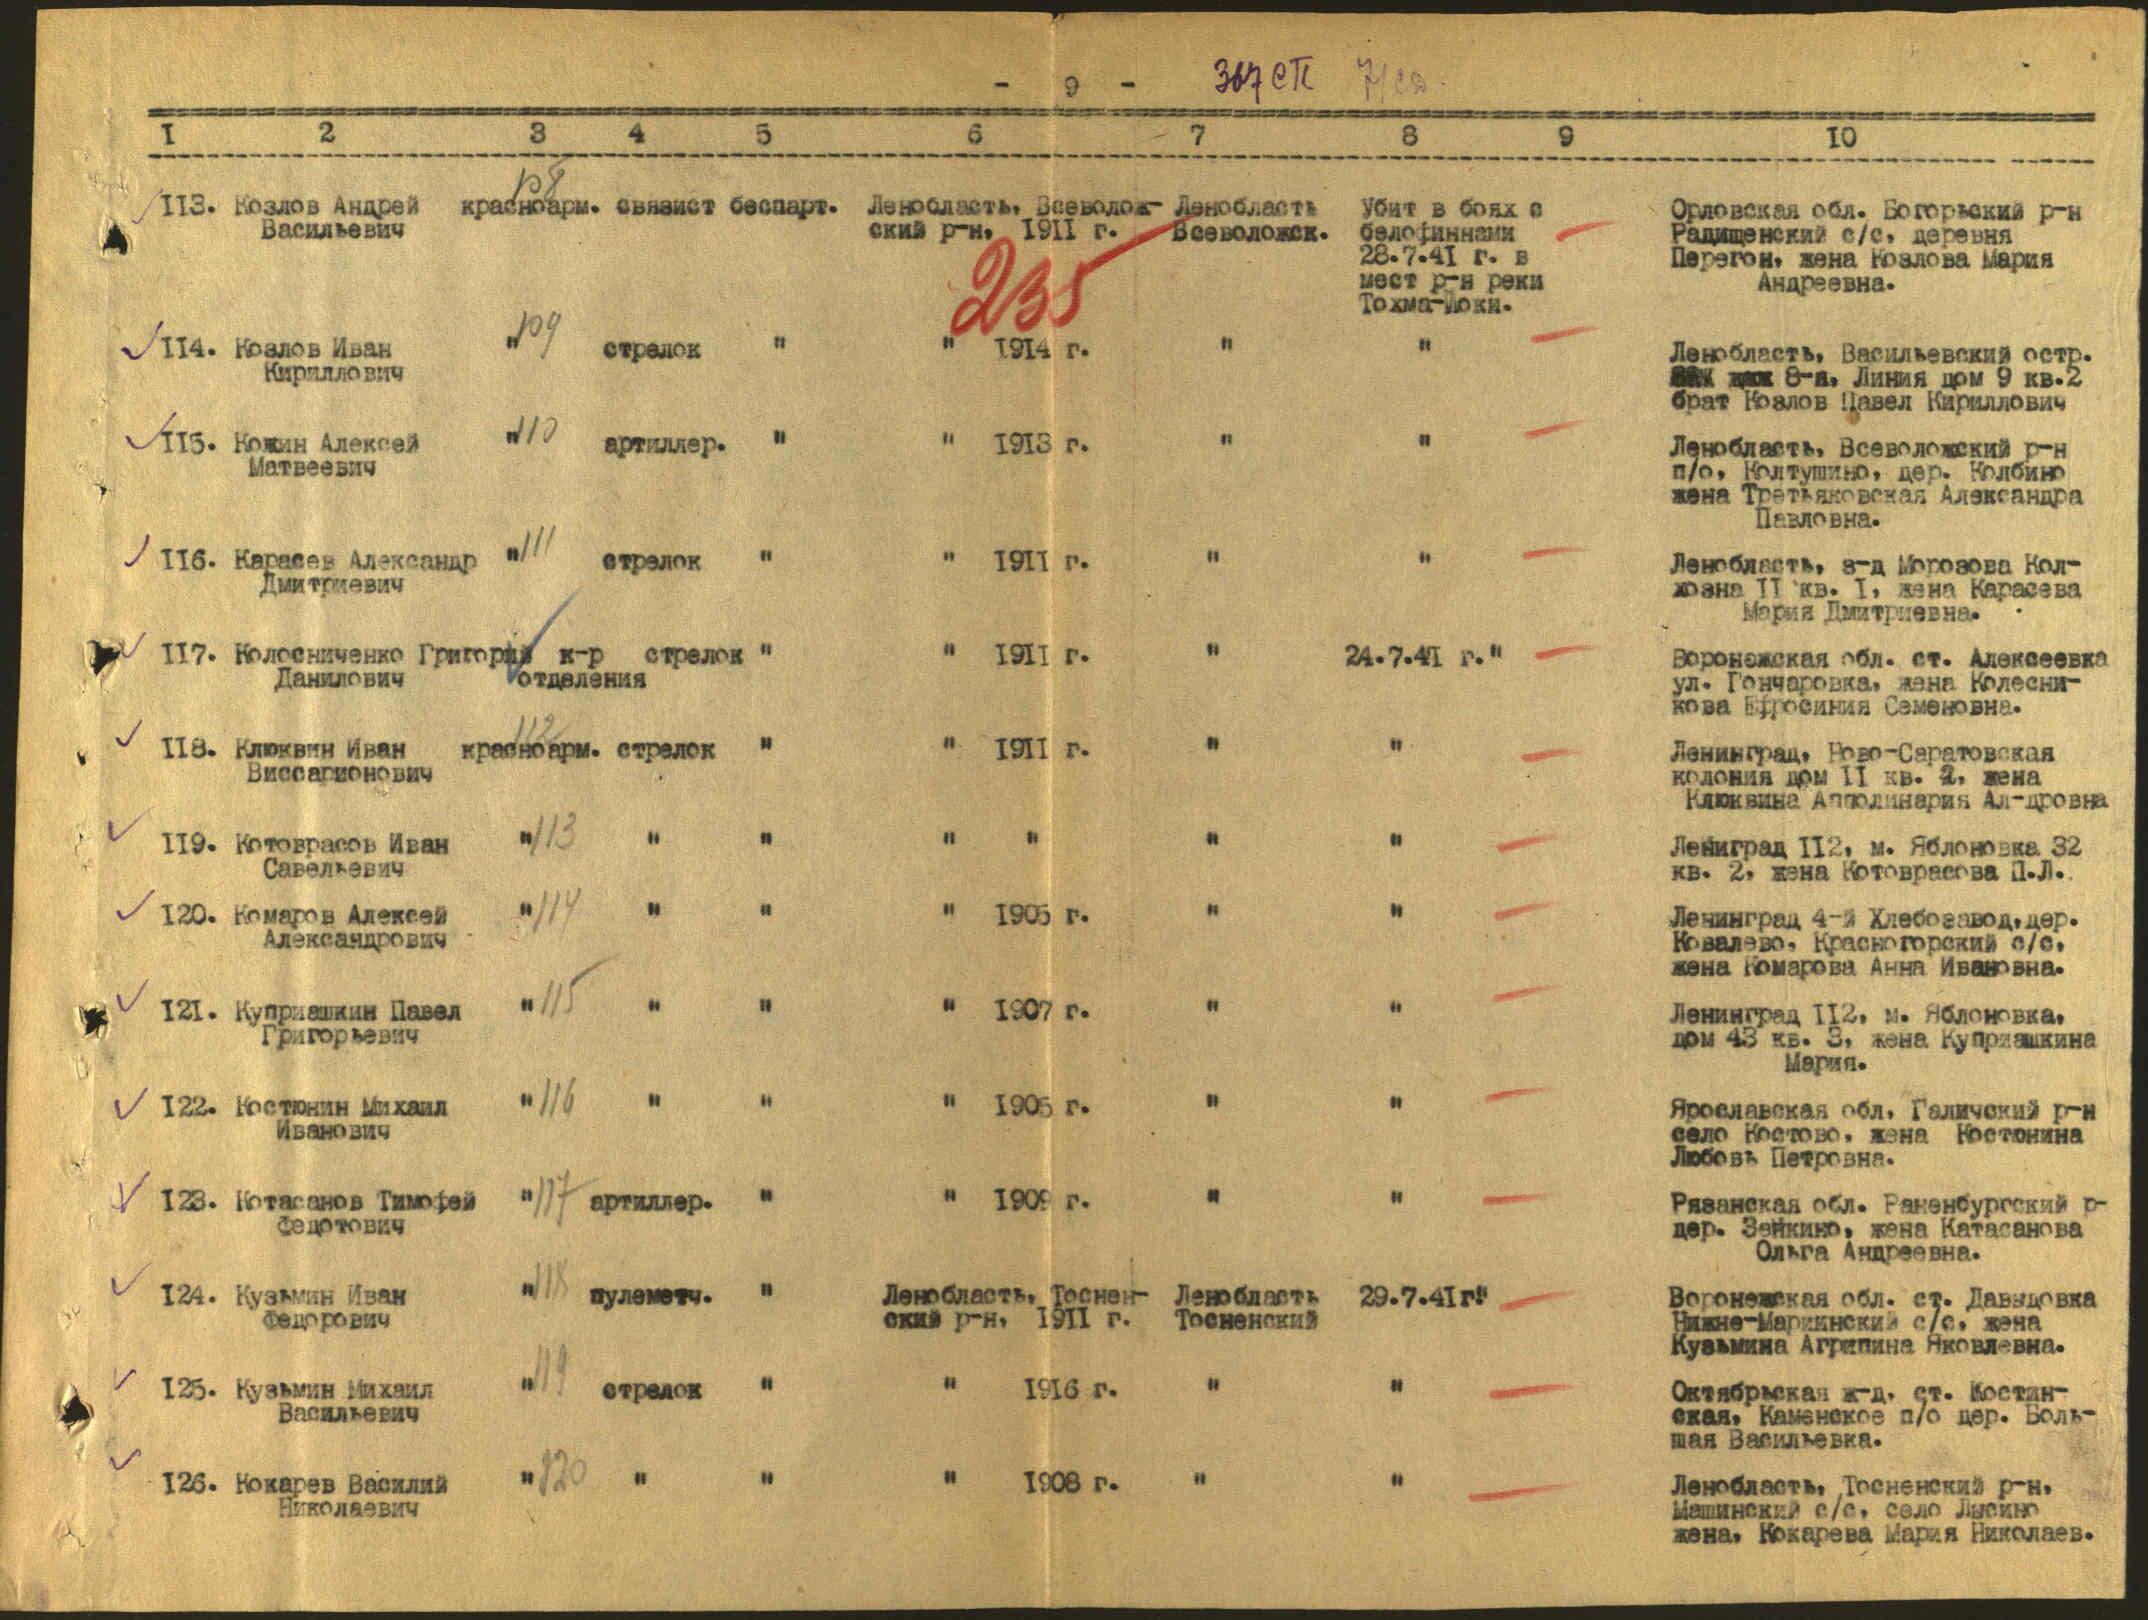 - 9 - 367 СП 71 сд.
I 2 3 4 5 6 7 8 9 10
108
II3. Козлов Андрей красноарм. связист беспарт. Ленобласть, Всеволож- Ленобласть Убит в боях с Орловская обл. Богорьский р-н
Васильевич ский р-н, I9II г. Всеволожск. белофиннами Радищенский с/с, деревня
28.7.4I г. в Перегон, жена Козлова Мария
235 мест р-н реки Андреевна.
Тохма-Йоки.
II4. Козлов Иван " 109 стрелок " " I9I4 г. " " Ленобласть, Васильевский остр.
Кириллович 8-я, Линия дом 9 кв.2
брат Козлов Павел Кириллович
II5. Кожин Алексей " 110 артиллер. " " I9I3 г. " " Ленобласть, Всеволожский р-н
Матвеевич п/о, Колтушино, дер. Колбино
жена Третьяковская Александра
Павловна.
II6. Карасев Александр " 111 стрелок " " I9II г. " " Ленобласть, з-д Морозова Кол-
Дмитриевич хозна II кв. I, жена Карасева
Мария Дмитриевна.
II7. Колосниченко Григорий к-р стрелок " " I9II г. " 24.7.4I г." Воронежская обл. ст. Алексеевка
Данилович отделения ул. Гончаровка, жена Колесни-
кова Ефросиния Семеновна.
112
II8. Клюквин Иван красноарм. стрелок " " I9II г. " " Ленинград, Ново-Саратовская
Виссарионович колония дом II кв. 2, жена
Клюквина Апполинария Ал-дровна
II9. Котоврасов Иван " 113 " " " " " " Лениград II2, м. Яблоновка 32
Савельевич кв. 2, жена Котоврасова П.Л.
I20. Комаров Алексей " 114 " " " I905 г. " " Ленинград 4-й Хлебозавод,дер.
Александрович Ковалево, Красногорский с/с,
жена Комарова Анна Ивановна.
I2I. Куприашкин Павел " 115 " " " I907 г. " " Ленинград II2, м. Яблоновка,
Григорьевич дом 43 кв. 3, жена Куприашкина
Мария.
I22. Костюнин Михаил " 116 " " " I905 г. " " Ярославская обл, Галичский р-н
Иванович село Костово, жена Костюнина
Любовь Петровна.
I23. Котасанов Тимофей " 117 артиллер. " " I909 г. " " Рязанская обл. Раненбургский р-
Федотович дер. Зенкино, жена Катасанова
Ольга Андреевна.
I24. Кузьмин Иван " 118 пулеметч. " Ленобласть, Тоснен- Ленобласть 29.7.4Iг." Воронежская обл. ст. Давыдовка
Федорович ский р-н, I9II г. Тосненский Нижне-Мариинский с/с, жена
Кузьмина Агрипина Яковлевна.
I25. Кузьмин Михаил " 119 стрелок " " I9I6 г. " " Октябрьская ж-д, ст. Костин-
Васильевич ская, Каменское п/о дер. Боль-
шая Васильевка.
I26. Кокарев Василий " 120 " " " I908 г. " " Ленобласть, Тосненский р-н,
Николаевич Машинский с/с, село Лысино
жена, Кокарева Мария Николаев.